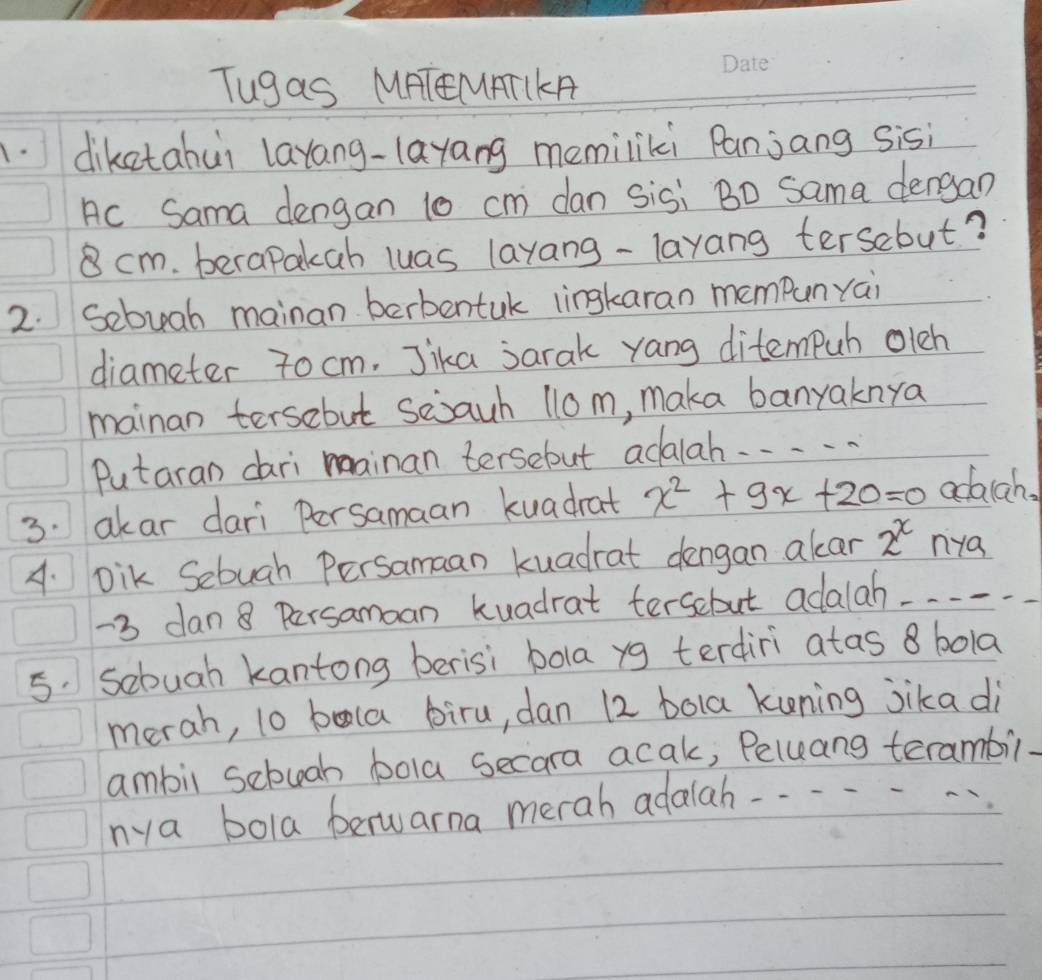 Date
Tugas MATEMATIKA
1. diketahui layang-layang memiliki Panjang sisi
AC Sama dengan 10 cm dan sisi BD Sama dengan
8 cm. berapakah luas layang-layang tersebut?
2. Sebuah mainan berbentuk lingkaran mempunyai
diameter 70 cm. Jika jarak yang ditempuh oleh
mainan tersebut sejauh 110 m, maka banyaknya
Putaran dari mainan tersebut adalah......
3. akar dari Persamaan kuadrat x² + 9x + 20 = 0 adalah.
4. Dik Sebuah Persamaan kuadrat dengan akar 2ˣ nya
-3 dan 8 Persamaan kuadrat tersebut adalah.......
5. Sebuah kantong berisi bola yg terdiri atas 8 bola
merah, 10 bola biru, dan 12 bola kuning jika di
ambil sebuah bola secara acak, Peluang terambil-
nya bola berwarna merah adalah........